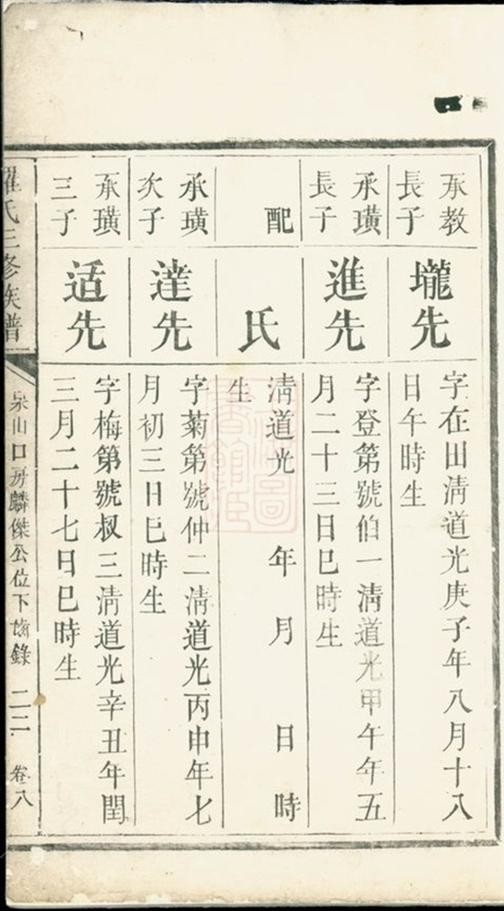 承教
長子
壠先
字在田淸道光庚子年八月十八
日午時生
承璜
長子
進先
字登第號伯一淸道光甲午年五
月二十三日巳時生
配
氏
淸道光 年 月 日時
生
承璜
次子
達先
字菊第號仲二淸道光丙申年七
月初三日巳時生
承璜
三子
适先
字梅第號叔三淸道光辛丑年閏
三月二十七日巳時生
羅氏三修族譜
泉山口房麟傑公位下齒錄 二二 卷八